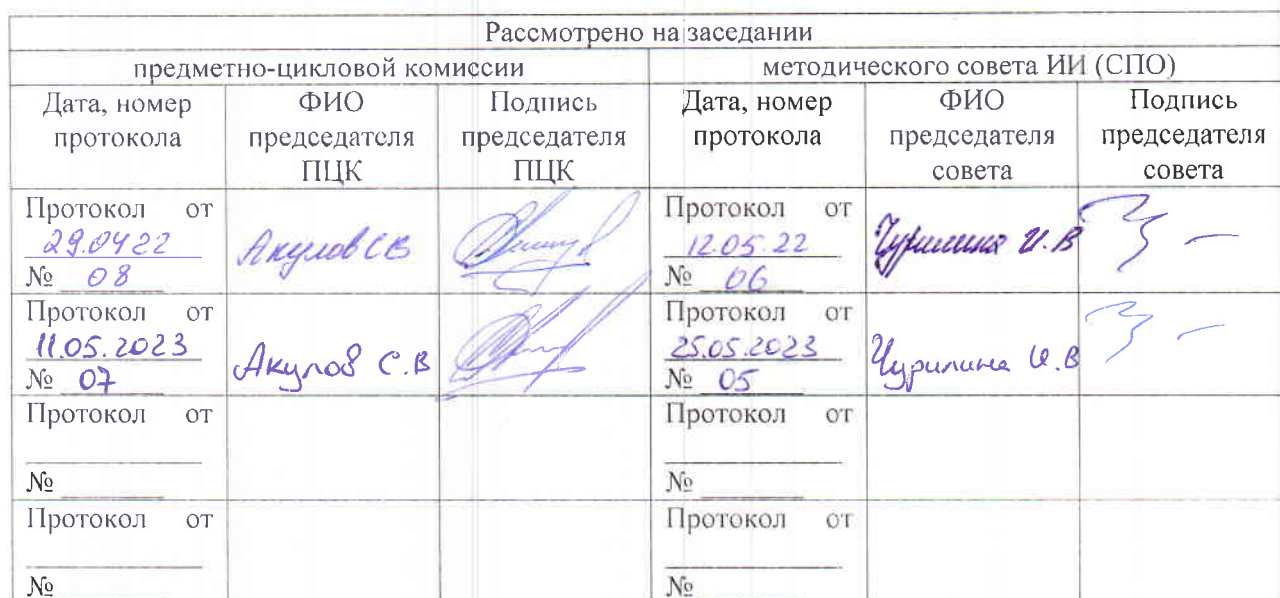 Рассмотрено на заседании
предметно-цикловой комиссии методического совета ИИ (СПО)
Дата, номер протокола ФИО председателя ПЦК Подпись председателя ПЦК Дата, номер протокола ФИО председателя совета Подпись председателя совета
Протокол от
29.04 22
№ 08
Акулов СВ
Протокол от
12.05.22
№ 06
Чурилина И.В
Протокол от
11.05.2023
№ 07
Акулов С.В
Протокол от
25.05.2023
№ 05
Чурилина И.В
Протокол от
№
Протокол от
№
Протокол от
№
Протокол от
№